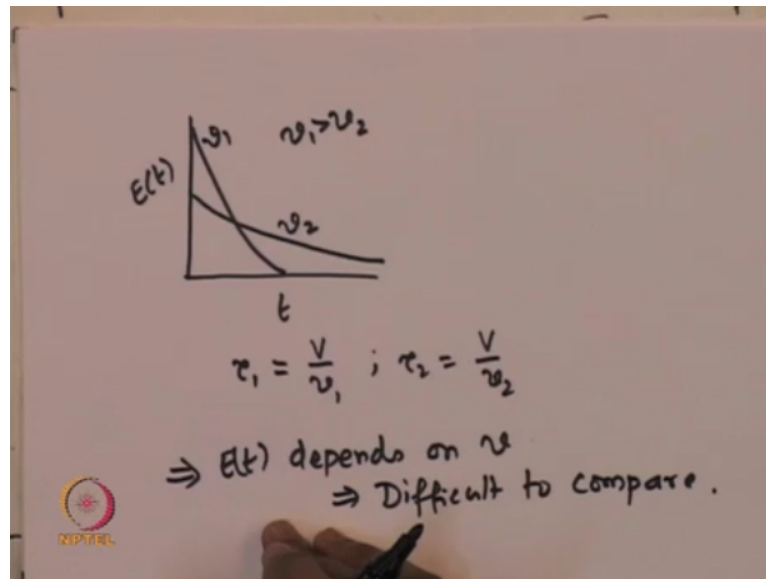 E(t)
υ₁
υ₁>υ₂
υ₂
t
τ₁ = V/υ₁ ; τ₂ = V/υ₂
⇒ E(t) depends on υ
⇒ Difficult to compare.
NPTEL